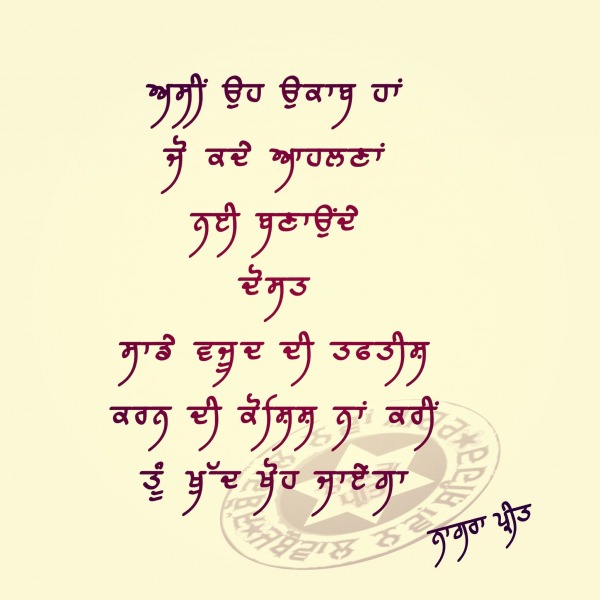 ਅਸੀਂ ਉਹ ਉਕਾਬ ਹਾਂ
ਜੋ ਕਦੇ ਆਹਲਣਾਂ
ਨਈ ਬਣਾਉਂਦੇ
ਦੋਸਤ
ਸਾਡੇ ਵਜੂਦ ਦੀ ਤਫਤੀਸ਼
ਕਰਨ ਦੀ ਕੋਸ਼ਿਸ਼ ਨਾਂ ਕਰੀਂ
ਤੂੰ ਖੁੱਦ ਖੋਹ ਜਾਏਂਗਾ
ਨਾਗਰਾ ਪ੍ਰੀਤ